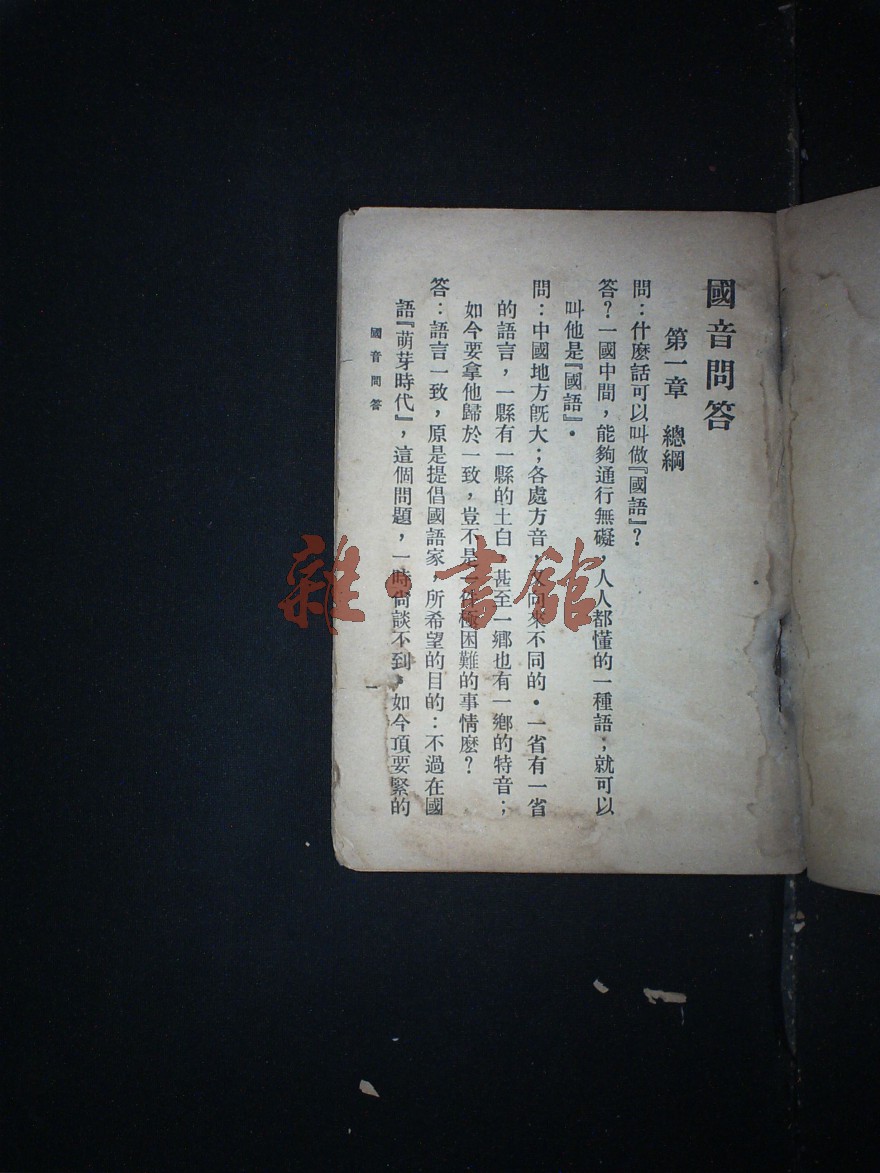 國音問答
第一章　總綱
問：什麼話可以叫做『國語』？
答？一國中間，能夠通行無礙，人人都懂的一種語；就可以
叫他是『國語』．
問：中國地方旣大；各處方音，又向來不同的．一省有一省
的語言，一縣有一縣的土白，甚至一鄉也有一鄉的特音；
如今要拿他歸於一致，豈不是一件極困難的事情麽？
答：語言一致，原是提倡國語家，所希望的目的：不過在國
語『萌芽時代』，這個問題，一時尙談不到，如今頂要緊的
國音問答
一
雜·書館